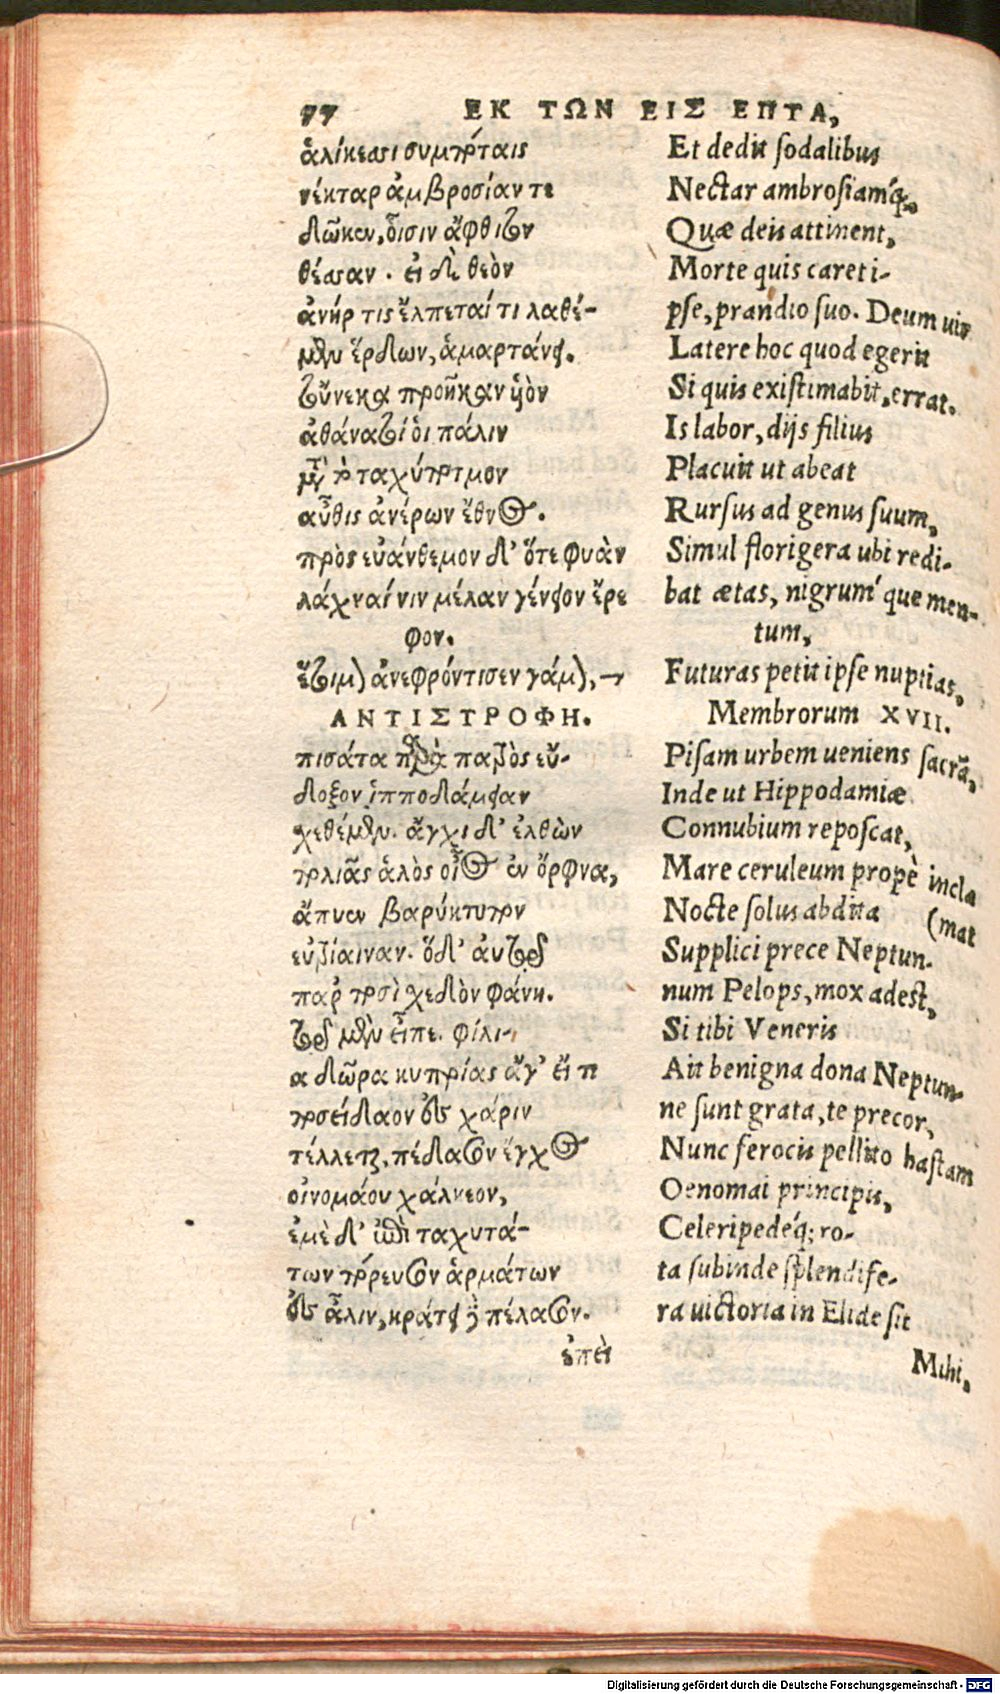 77 ΕΚ ΤΩΝ ΕΙΣ ΕΠΤΑ,
ἁλίκεσσι συμπόταις
νέκταρ ἀμβροσίαν τε
δῶκεν, οἷσιν ἄφθιτον
θέσαν. εἰ δὲ θεὸν
ἀνήρ τις ἔλπεταί τι λαθέ-
μεν ἔρδων, ἁμαρτάνει.
τοὔνεκα προῆκαν υἱὸν
ἀθάνατοί οἱ πάλιν
μετὰ τὸ ταχύποτμον
αὖθις ἀνέρων ἔθνος.
πρὸς εὐάνθεμον δ' ὅτε φυὰν
λάχναί νιν μέλαν γένειον ἔρε
φον.
ἕτοιμον ἀνεφρόντισεν γάμον,
ΑΝΤΙΣΤΡΟΦΗ.
πισάτα παρὰ πατρὸς εὔ-
δοξον ἱπποδάμειαν
χεθέμεν. ἄγχι δ' ἐλθὼν
πολιᾶς ἁλὸς οἶος ἐν ὄρφνα,
ἄπυεν βαρύκτυπον
εὐτρίαιναν. ὁ δ' αὐτῷ
παρ ποσὶ χεδὸν φάνη.
τῷ μὲν εἶπε. φίλι-
α δῶρα κυπρίας ἄγ' εἴ τι
ποσείδαον ἐς χάριν
τέλλεται, πέδασον ἔγχος
οἰνομάου χάλκεον,
ἐμὲ δ' ἐπὶ ταχυτά-
των πόρευσον ἁρμάτων
ἐς ἆλιν, κράτει δὲ πέλασον.
ἐπεὶ
Et dedit sodalibus
Nectar ambrosiamq́;
Quæ deis attinent,
Morte quis caret i-
pse, prandio suo. Deum uir
Latere hoc quod egerit
Si quis existimabit, errat.
Is labor, dijs filius
Placuit ut abeat
Rursus ad genus suum,
Simul florigera ubi redi-
bat ætas, nigrum´ que men-
tum,
Futuras petit ipse nuptias,
Membrorum XVII.
Pisam urbem ueniens sacrā,
Inde ut Hippodamiæ
Connubium reposcat,
Mare ceruleum propè incla
Nocte solus abdita (mat
Supplici prece Neptun-
num Pelops, mox adest,
Si tibi Veneris
Ait benigna dona Neptun-
ne sunt grata, te precor,
Nunc ferocis pellito hastam
Oenomai principis,
Celeripedeq́; ro-
ta subinde splendife-
ra uictoria in Elide sit
Mihi,
Digitalisierung gefördert durch die Deutsche Forschungsgemeinschaft - DFG